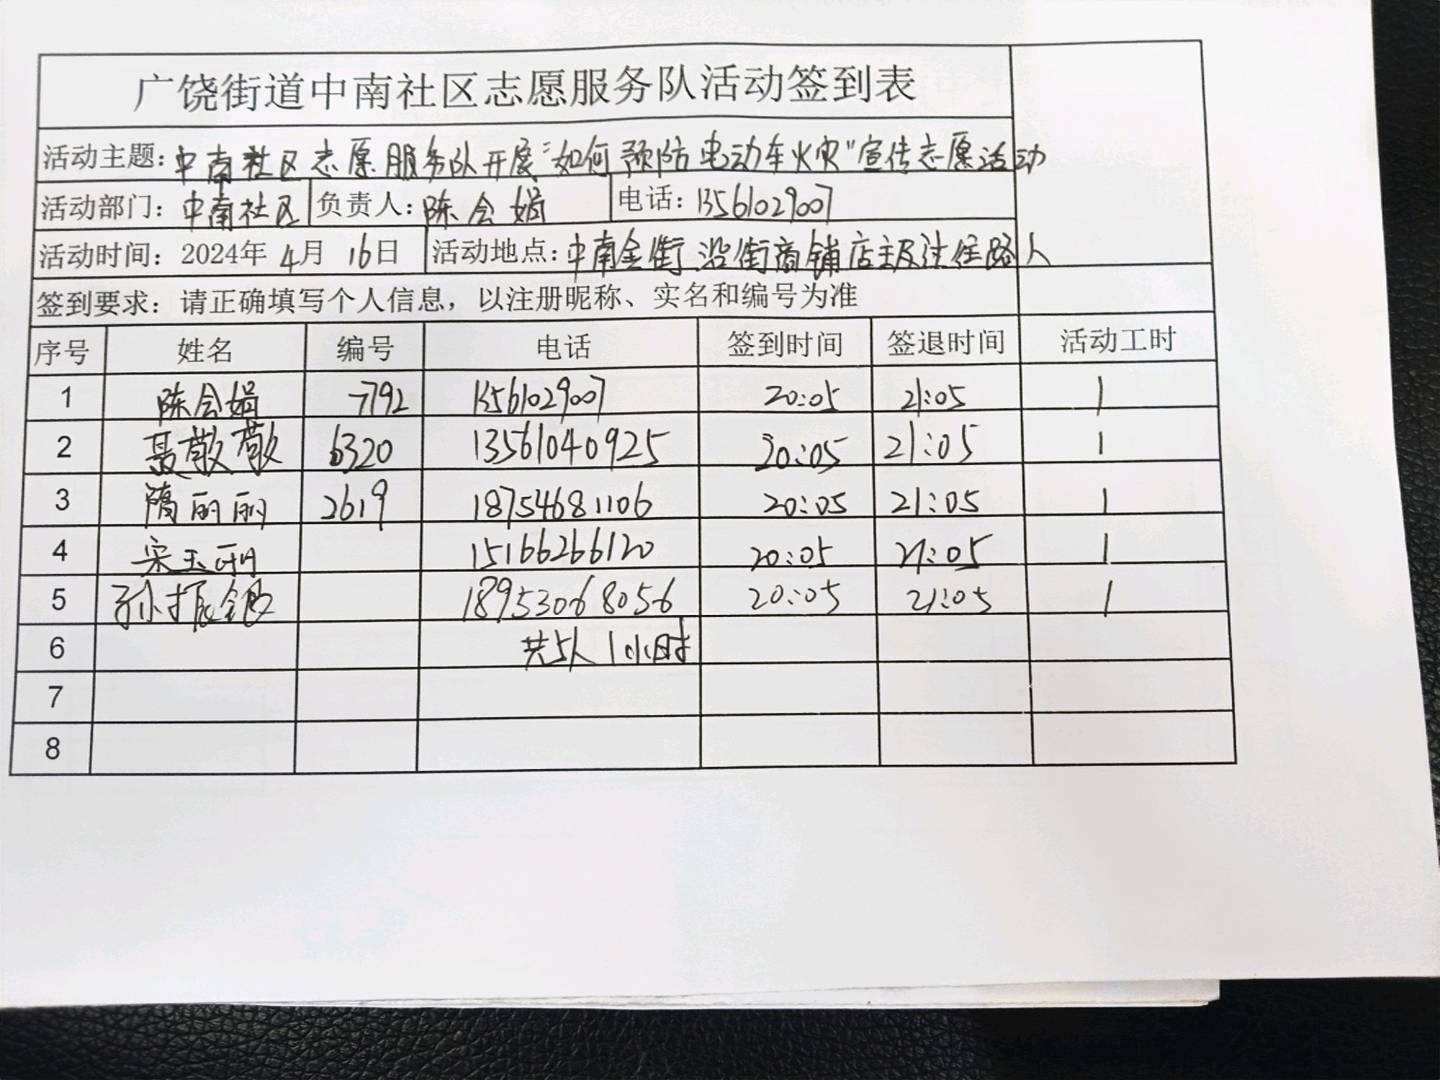 广饶街道中南社区志愿服务队活动签到表
活动主题：中南社区志愿服务队开展"如何预防电动车火灾"宣传志愿活动
活动部门：中南社区 负责人：陈会娟 电话：13561029007
活动时间：2024年4月16日 活动地点：中南金街沿街商铺店主及过往路人
签到要求：请正确填写个人信息，以注册昵称、实名和编号为准
序号 姓名 编号 电话 签到时间 签退时间 活动工时
1 陈会娟 7792 13561029007 20:05 21:05 1
2 聂敬敬 6320 13561040925 20:05 21:05 1
3 隋丽丽 2619 18754681106 20:05 21:05 1
4 宋玉 15166266120 20:05 21:05 1
5 孙振银 18953068056 20:05 21:05 1
6 共5人1小时
7
8